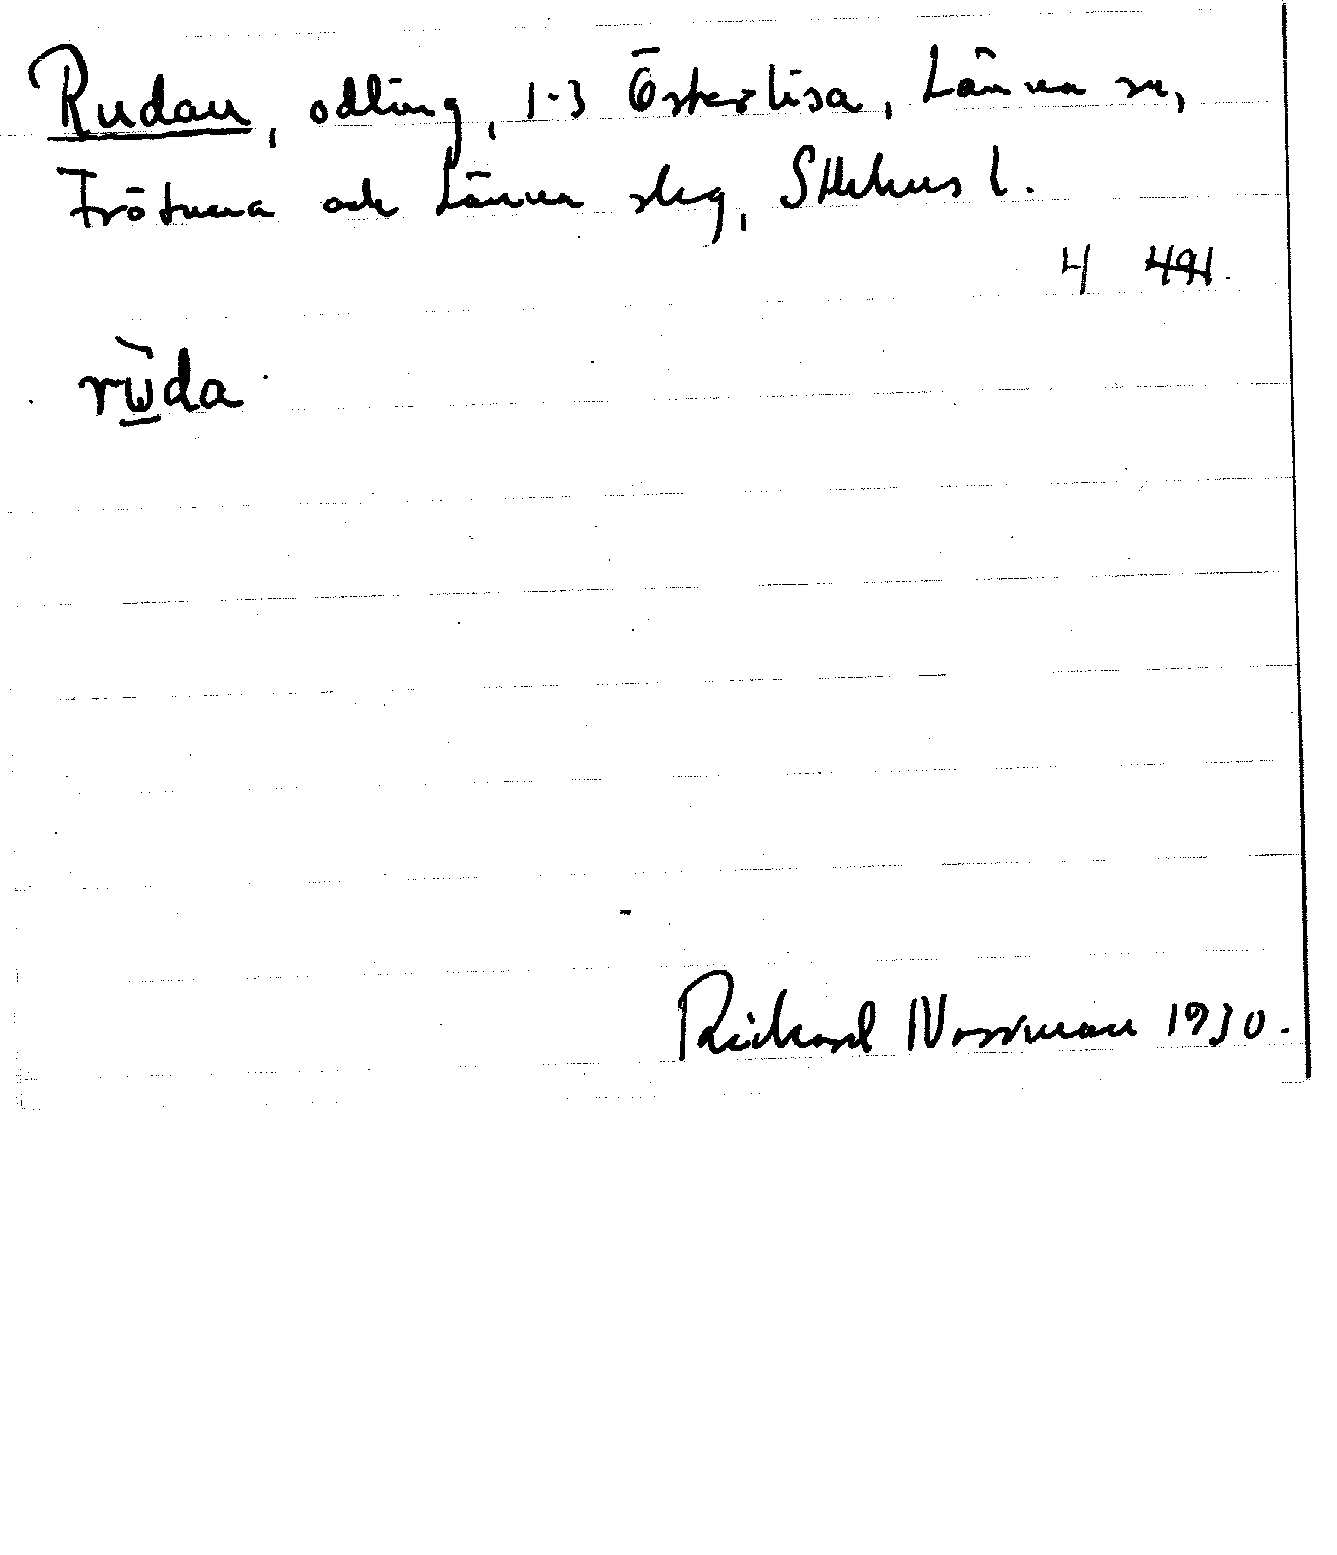 Rudan, odling, 1-3 Österlisa, Länna sn,
Frötuna och Länna slg, Sthlms l.
4 491.
rùda
Rickard Norrman 1930.